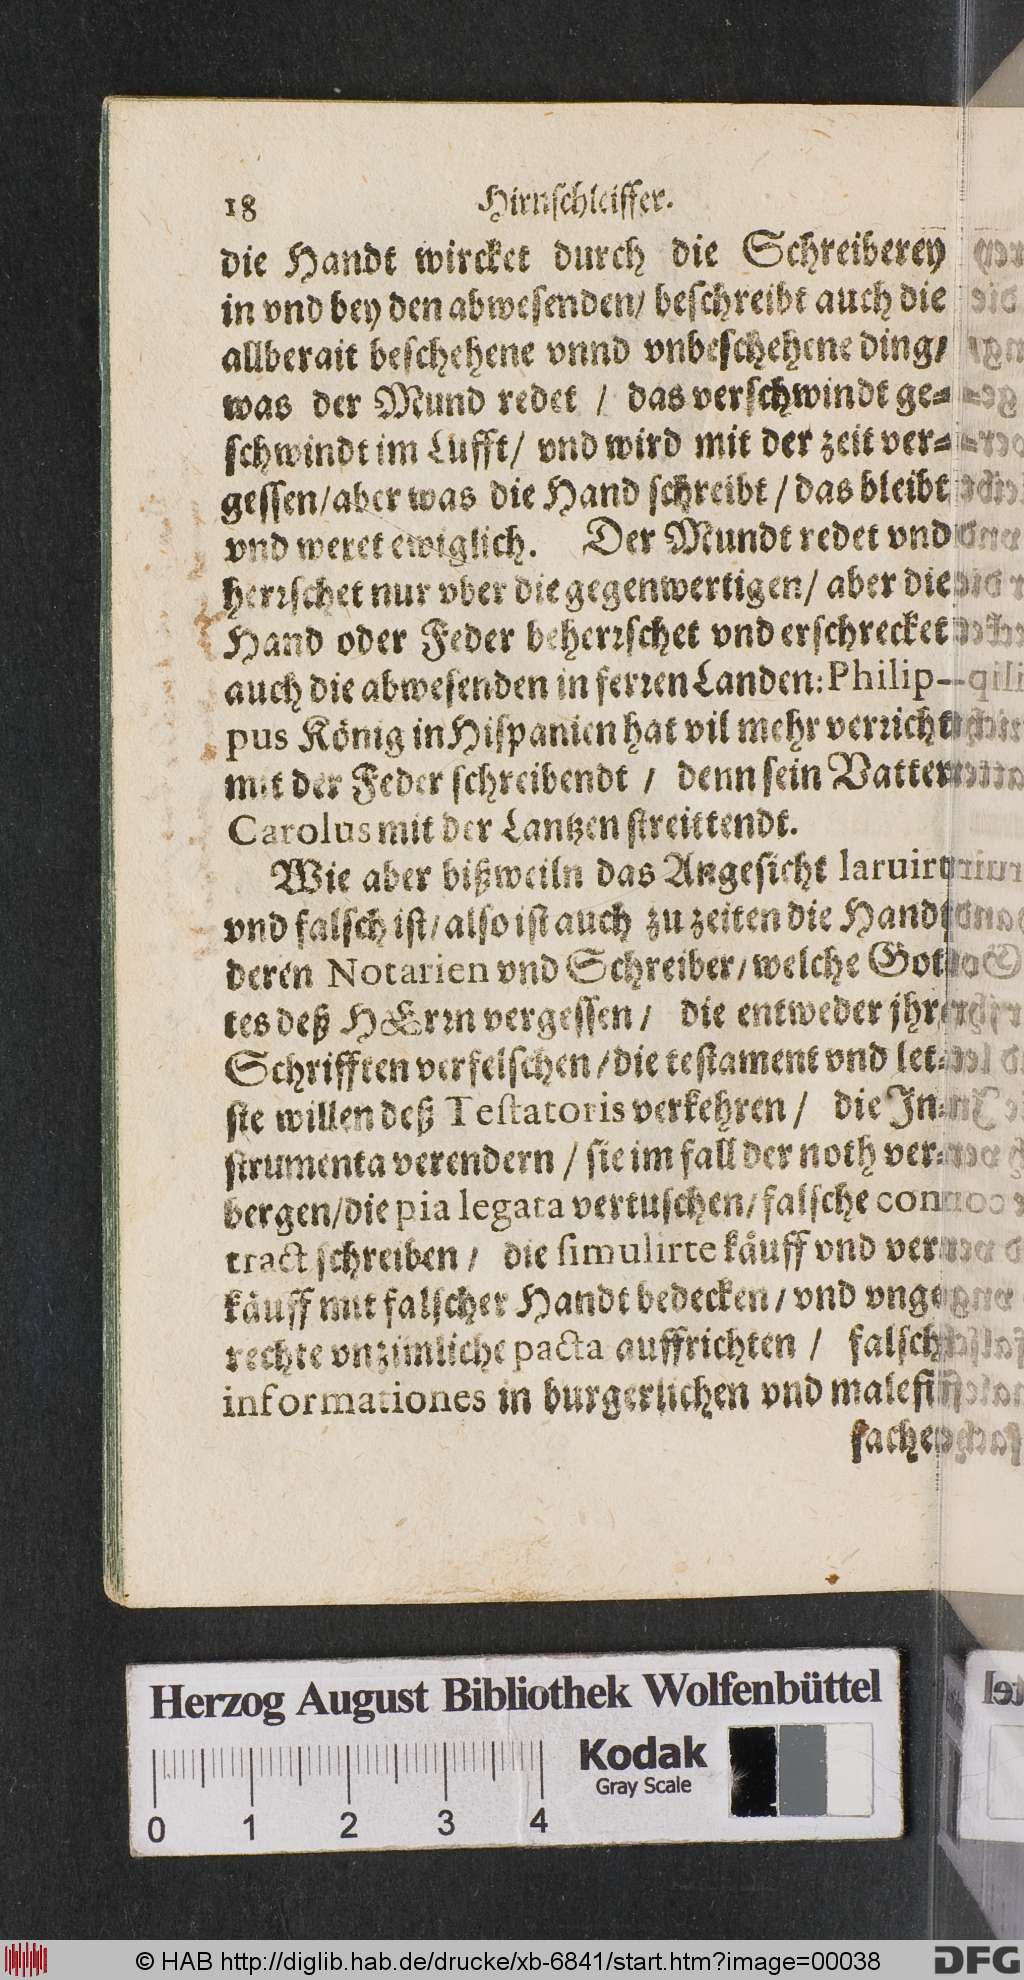 18 Hirnschleiffer.
die Handt wircket durch die Schreiberey
in vnd bey den abwesenden/ beschreibt auch die
allberait beschehene vnnd vnbeschehene ding/
was der Mund redet / das verschwindt ge-
schwindt im Lufft/ vnd wird mit der zeit ver-
gessen/aber was die Hand schreibt / das bleibt
vnd weret ewiglich. Der Mundt redet vnd
herrschet nur vber die gegenwertigen/ aber die
Hand oder Feder beherrschet vnd erschrecket
auch die abwesenden in ferren Landen: Philip-
pus König in Hispanien hat vil mehr verricht
mit der Feder schreibendt / denn sein Vatter
Carolus mit der Lantzen streittendt.
Wie aber bißweiln das Angesicht laruirt
vnd falsch ist/ also ist auch zu zeiten die Handt
deren Notarien vnd Schreiber/ welche Got-
tes deß HErrn vergessen / die entweder jhre
Schrifften verfelschen / die testament vnd let-
ste willen deß Testatoris verkehren / die In-
strumenta verendern / sie im fall der noth ver-
bergen/die pia legata vertuschen/ falsche con-
tract schreiben / die simulirte käuff vnd ver-
käuff mit falscher Handt bedecken / vnd vnge-
rechte vnzimliche pacta auffrichten / falsche
informationes in burgerlichen vnd malefitz
sachen
Herzog August Bibliothek Wolfenbüttel
Kodak
Gray Scale
0 1 2 3 4
© HAB http://diglib.hab.de/drucke/xb-6841/start.htm?image=00038
DFG